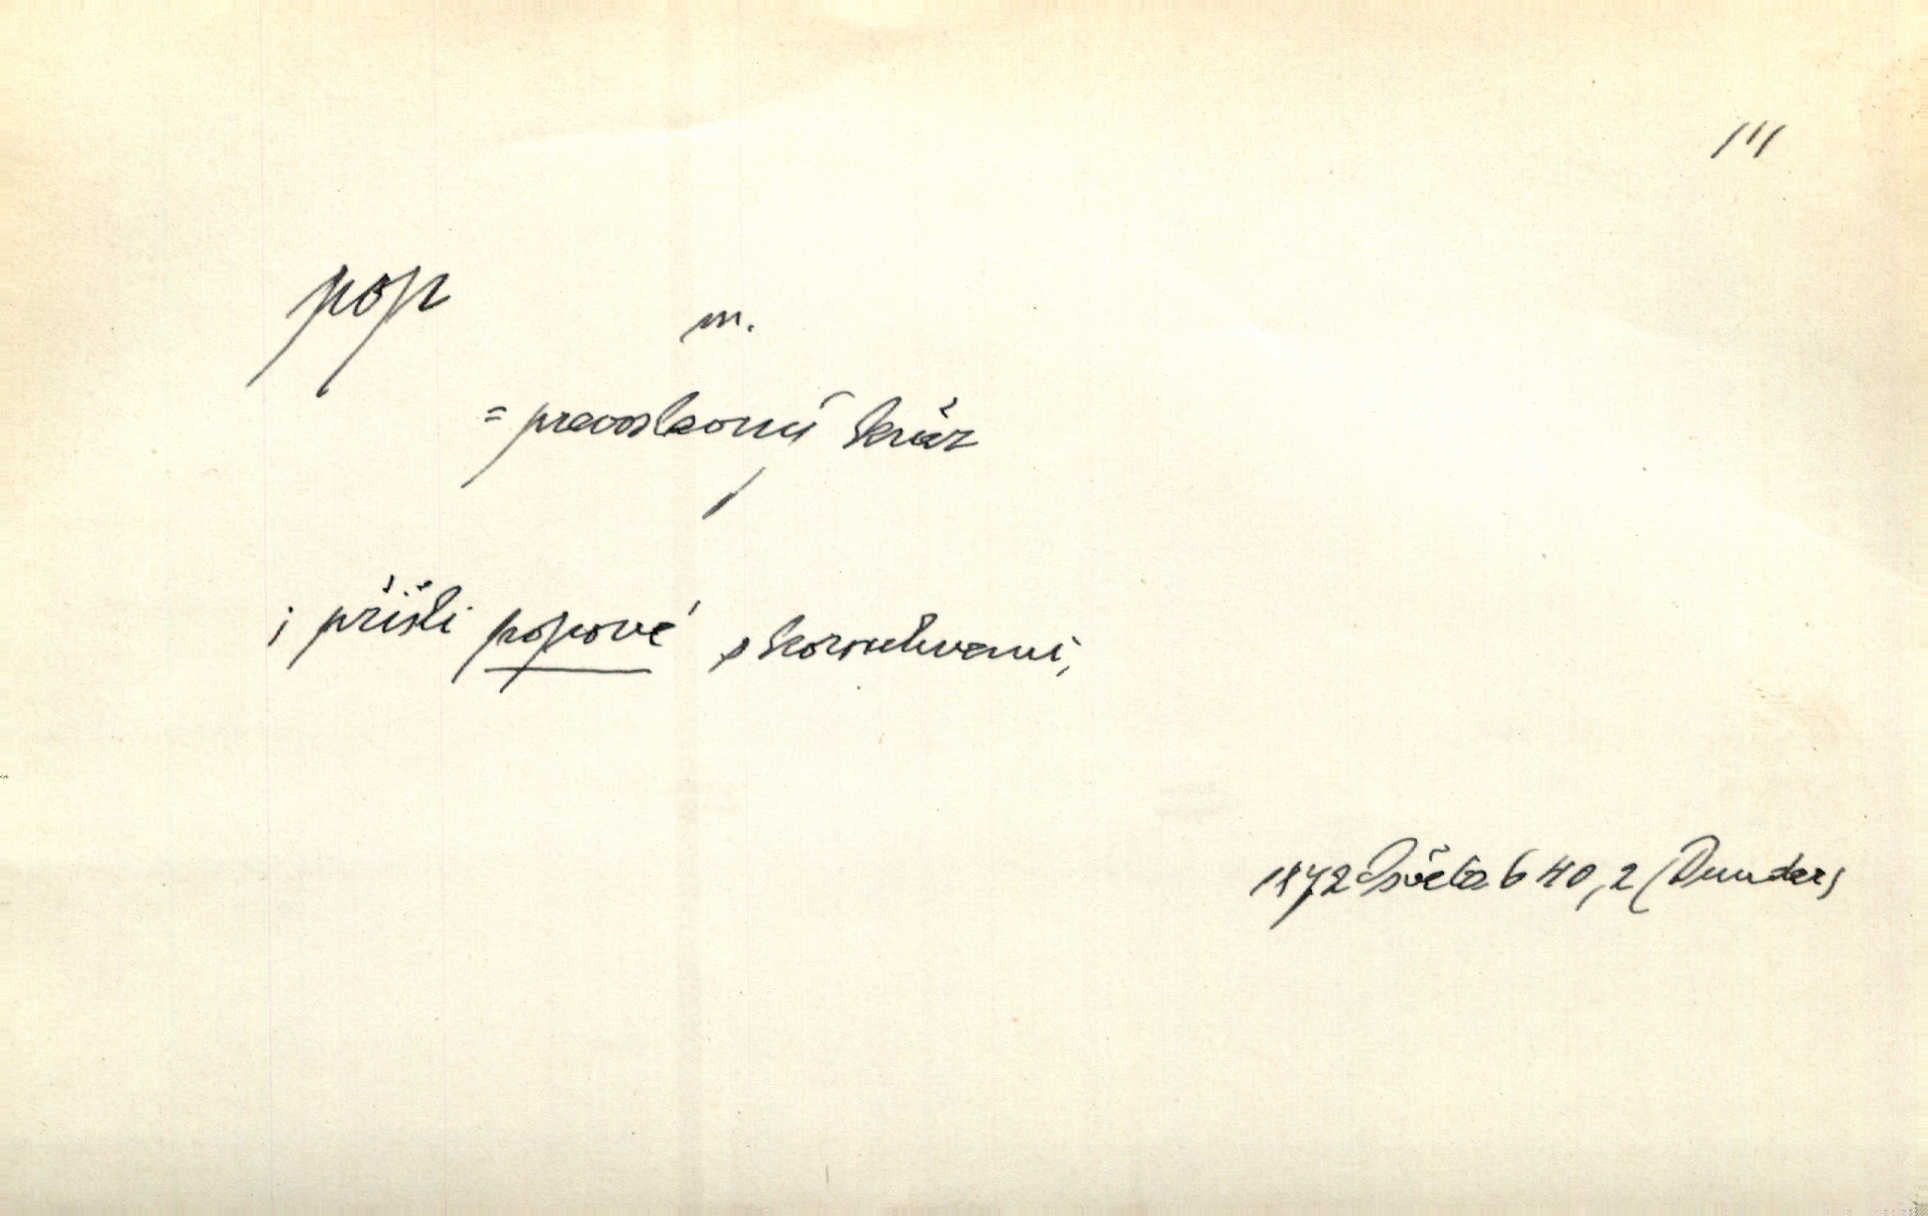 111
pop
m.
= pravoslavný kněz
; přišli popové s korouhvemi,
1872 Osvěta 640,2 (Dunder)